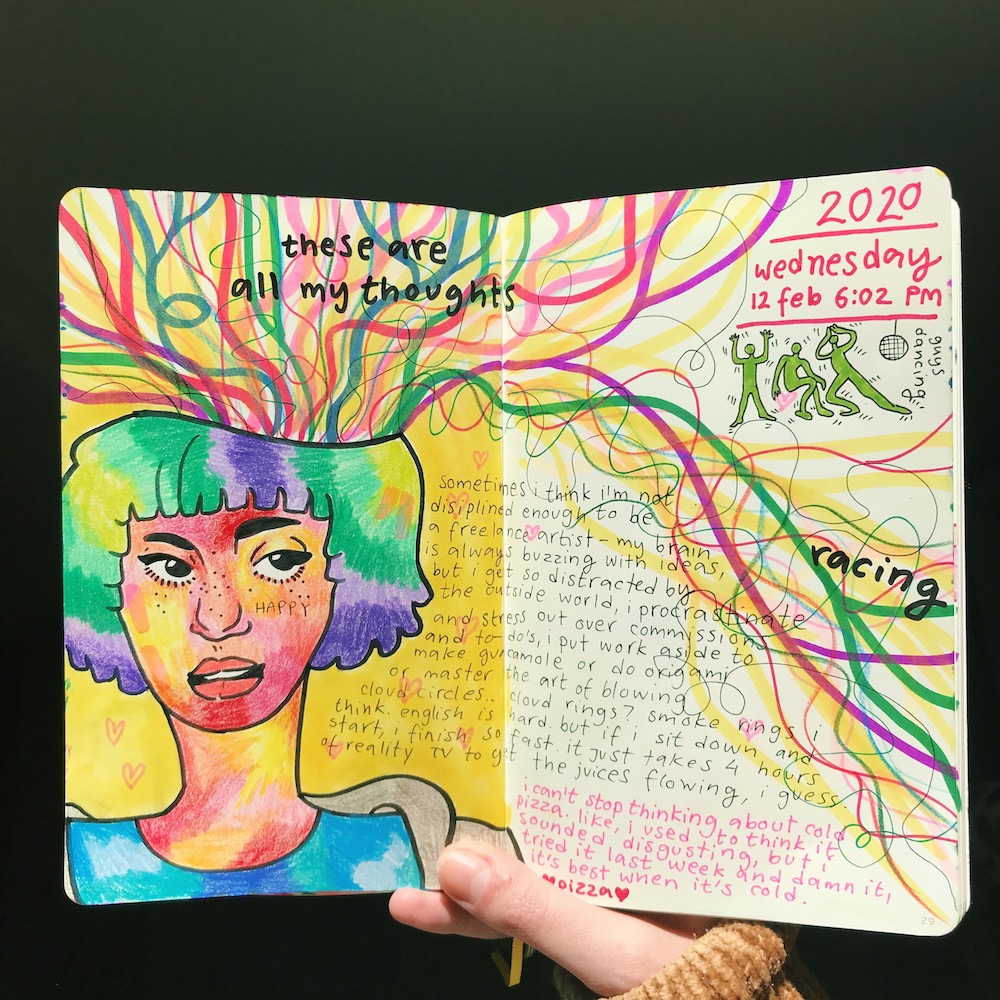 these are
all my thoughts
2020
wednesday
12 feb 6:02 pm
guys
dancing
racing
HAPPY
sometimes i think i'm not
disiplined enough to be
a freelance artist - my brain
is always buzzing with ideas,
but i get so distracted by
the outside world, i procrastinate
and stress out over commissions
and to-do's, i put work aside to
make guacamole or do origami
or master the art of blowing
cloud circles.. cloud rings? smoke rings i
think. english is hard. but if i sit down and
start, i finish so fast. it just takes 4 hours
of reality tv to get the juices flowing, i guess
i can't stop thinking about cold
pizza. like, i used to think it
sounded disgusting, but i
tried it last week and damn it,
it's best when it's cold.
♥pizza♥
29